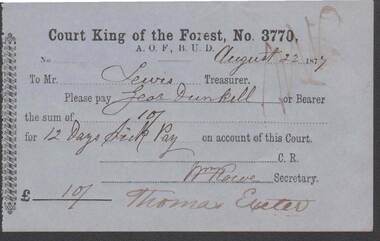 Court King of the Forest, No. 3770,
A. O. F., B. U. D.
No. August 22 1877
To Mr. Lewis Treasurer.
Please pay Geor Dunkell or Bearer
the sum of 10/
for 12 Days Sick Pay on account of this Court.
C. R.
Wm Rowe Secretary.
£ 10/ Thomas Exeter